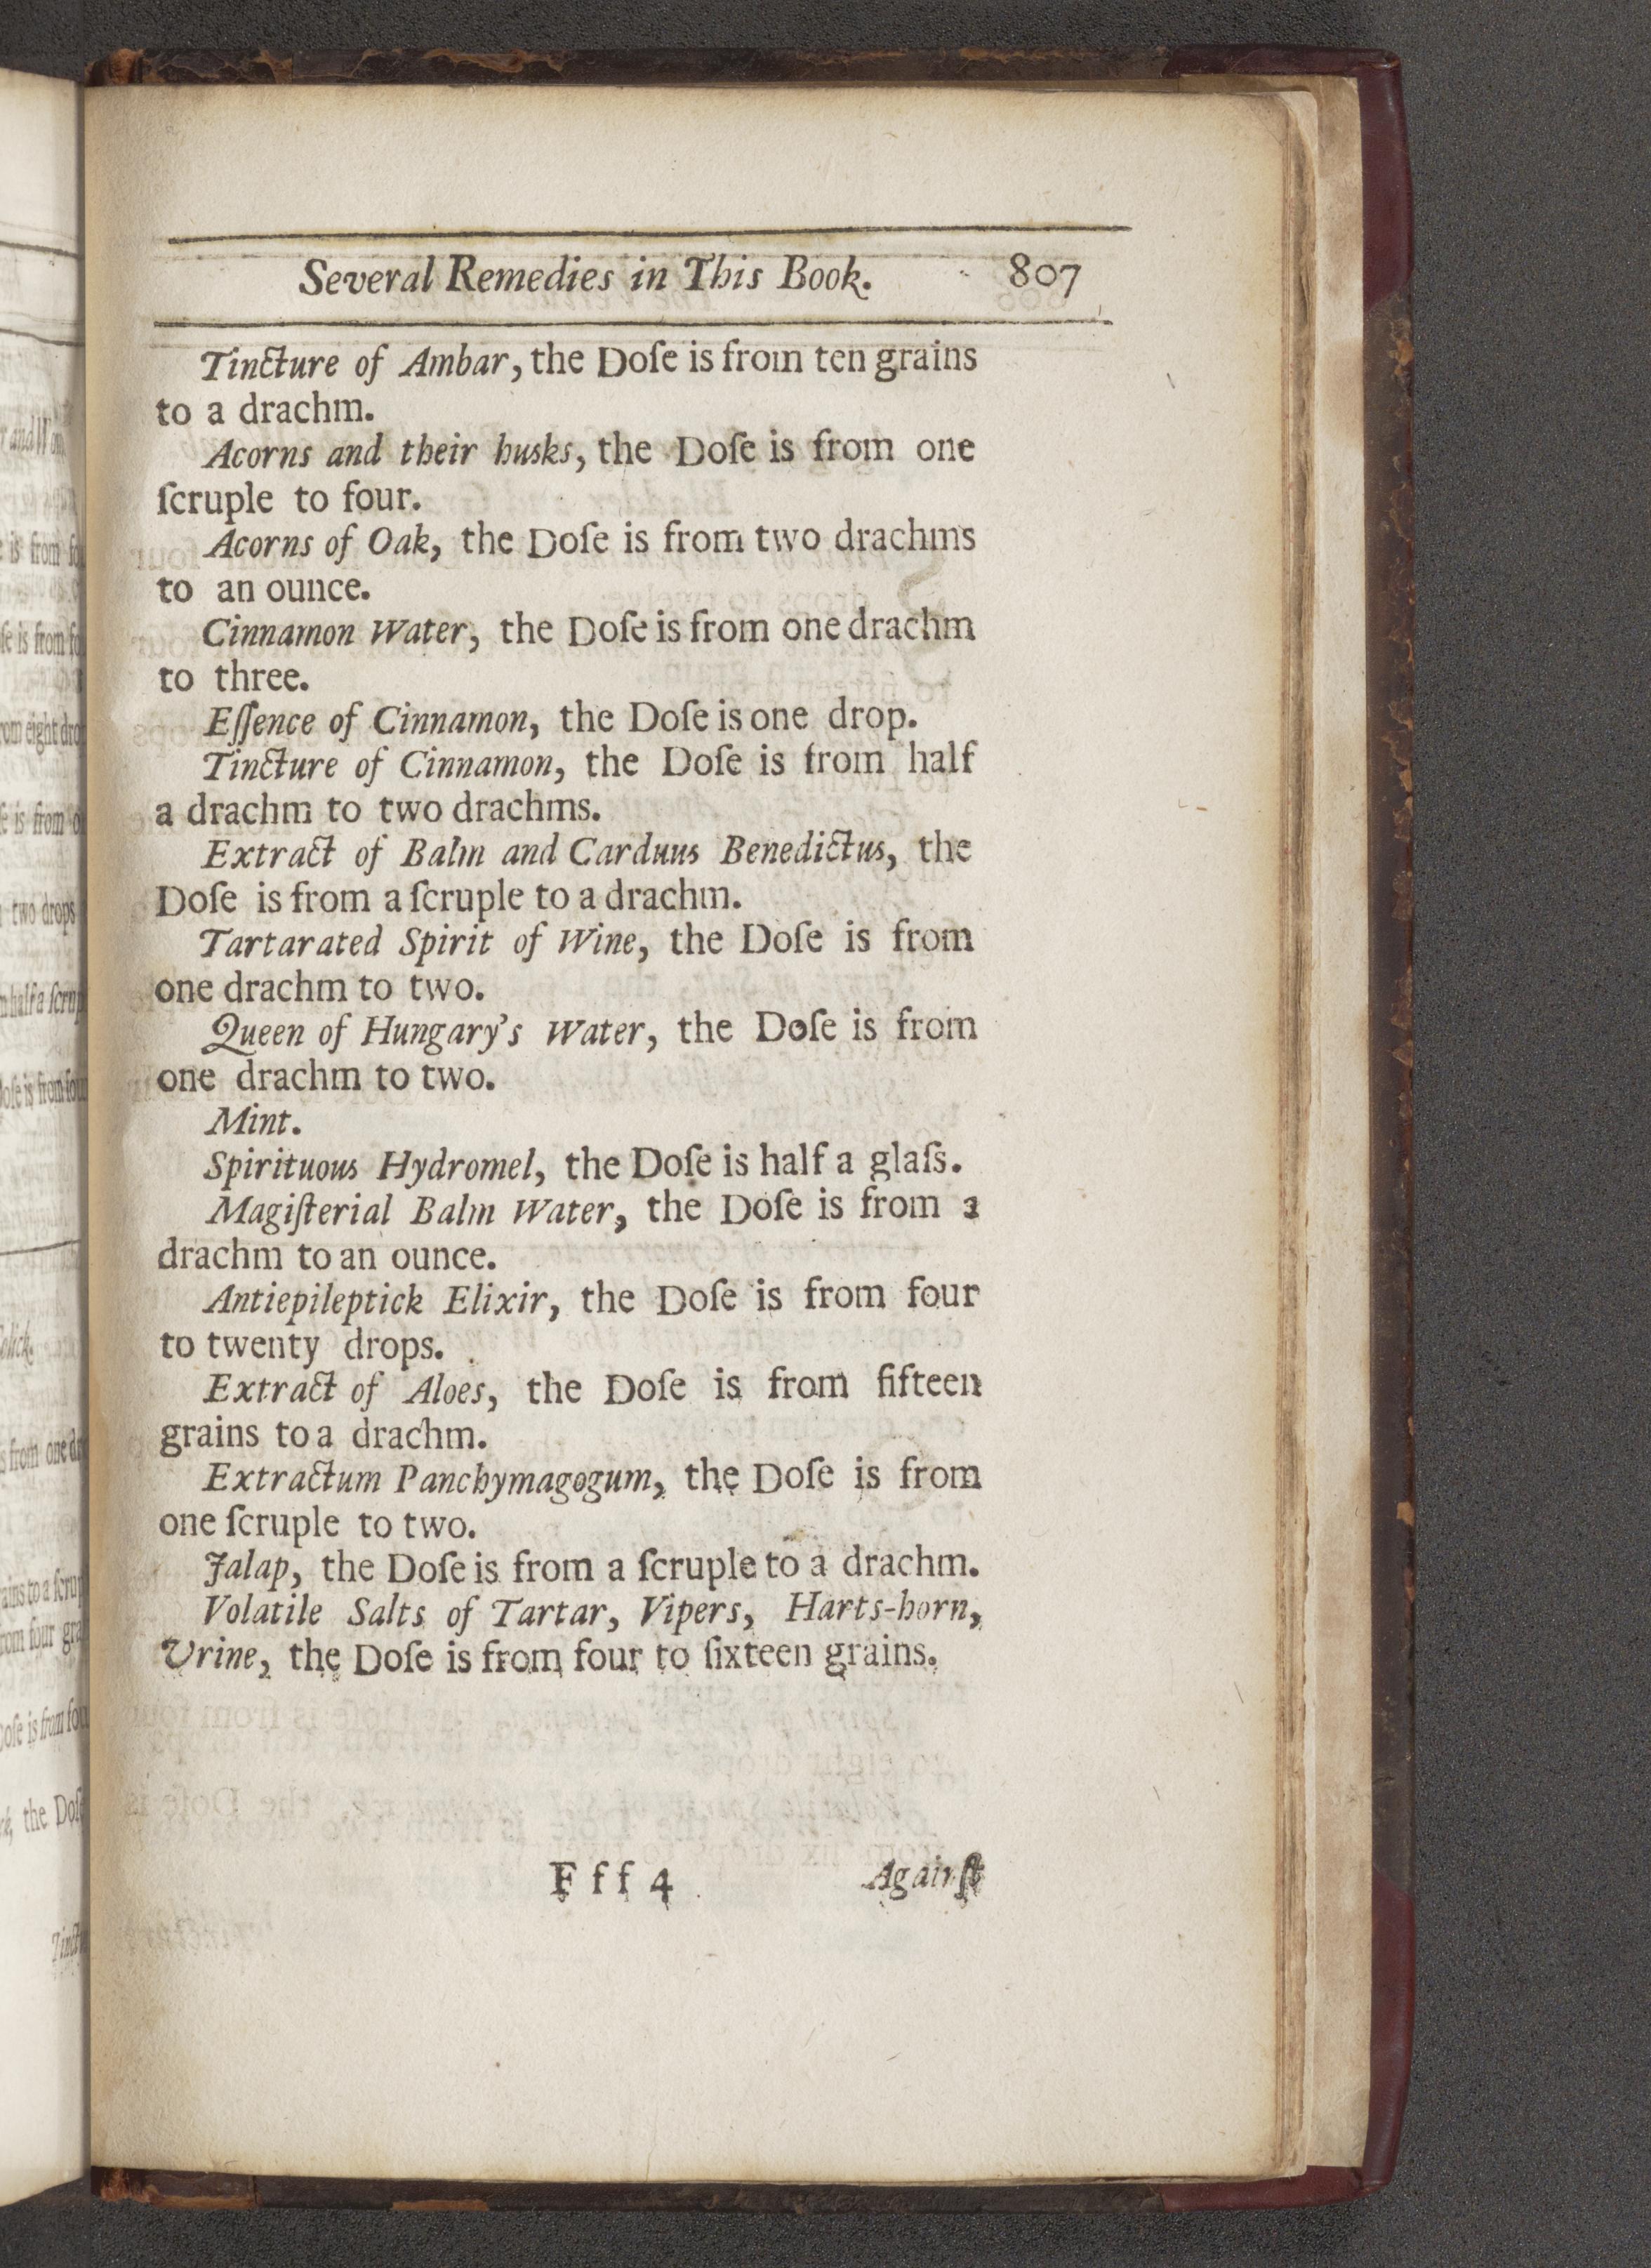 Several Remedies in This Book. 807
Tincture of Ambar, the Doſe is from ten grains
to a drachm.
Acorns and their husks, the Doſe is from one
ſcruple to four.
Acorns of Oak, the Doſe is from two drachms
to an ounce.
Cinnamon Water, the Doſe is from one drachm
to three.
Eſſence of Cinnamon, the Doſe is one drop.
Tincture of Cinnamon, the Doſe is from half
a drachm to two drachms.
Extract of Balm and Carduus Benedictus, the
Doſe is from a ſcruple to a drachm.
Tartarated Spirit of Wine, the Doſe is from
one drachm to two.
Queen of Hungary's Water, the Doſe is from
one drachm to two.
Mint.
Spirituous Hydromel, the Doſe is half a glaſs.
Magiſterial Balm Water, the Doſe is from a
drachm to an ounce.
Antiepileptick Elixir, the Doſe is from four
to twenty drops.
Extract of Aloes, the Doſe is from fifteen
grains to a drachm.
Extractum Panchymagogum, the Doſe is from
one ſcruple to two.
Jalap, the Doſe is from a ſcruple to a drachm.
Volatile Salts of Tartar, Vipers, Harts-horn,
Urine, the Doſe is from four to ſixteen grains.
F f f 4 Againſt